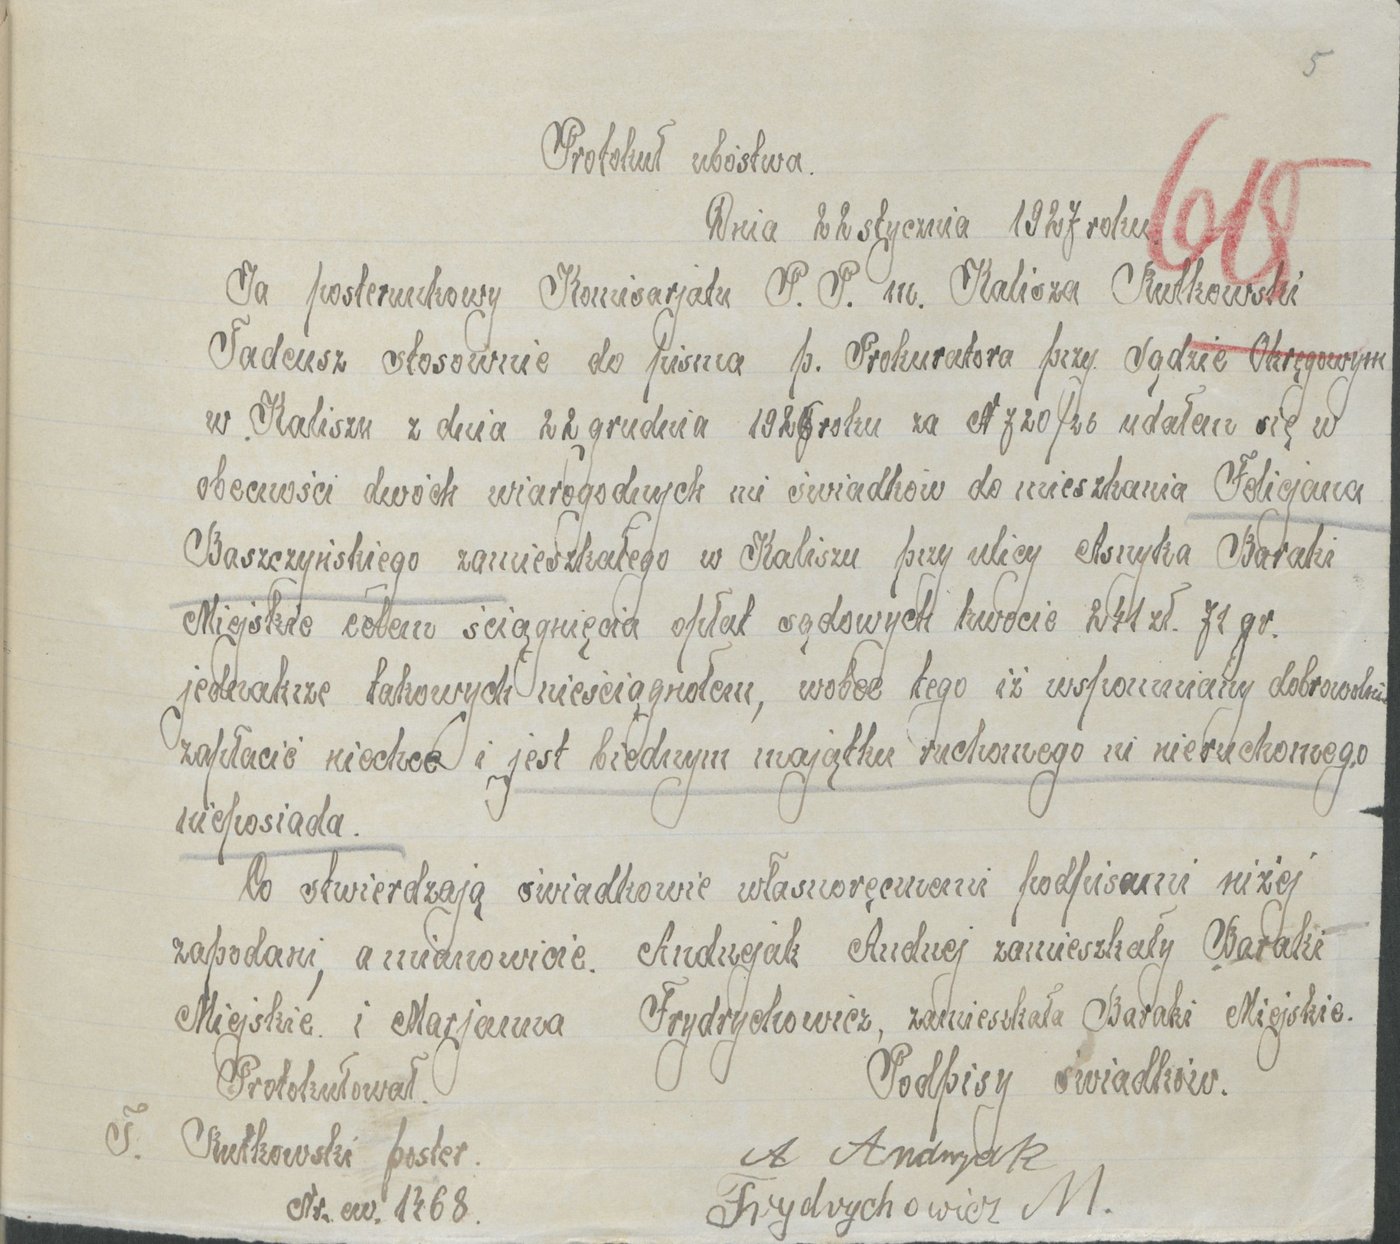 5
Protokuł ubóstwa.
618
Dnia 22 stycznia 1927 roku.
Ja posterunkowy Komisarjatu P. P. m. Kalisza Rutkowski
Tadeusz stosownie do pisma p. Prokuratora przy Sądzie Okręgowym
w Kaliszu z dnia 22 grudnia 1926 roku za № 720/26 udałem się w
obecności dwóch wiarogodnych mi świadków do mieszkania Felicjana
Baszczyńskiego zamieszkałego w Kaliszu przy ulicy Asnyka Baraki
Miejskie celem ściągnięcia opłat sądowych kwocie 241 zł. 71 gr.
jednakrze takowych nieściągnołem, wobec tego iż wspomniany dobrowolnie
zapłacić niechce i jest biednym majątku ruchomego ni nieruchomego
nieposiada.
Co stwierdzają świadkowie własnoręcznemi podpisami niżej
zapodani, a mianowicie. Andrzejak Andrzej zamieszkały Baraki
Miejskie. i Marjanna Frydrychowicz, zamieszkała Baraki Miejskie.
Protokułował. Podpisy świadków.
T. Rutkowski poster. A Andrzejak
Nr. ew. 1468. Frydrychowicz M.